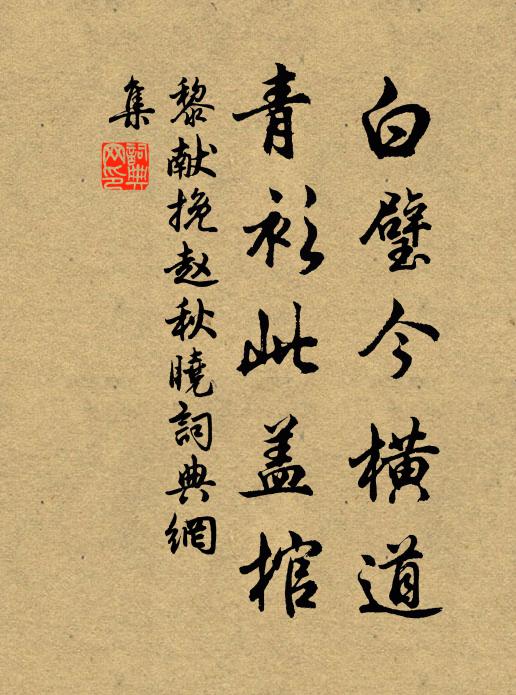 白璧今横道
青衫此盖棺
黎献挽赵秋曉詞典網
集
詞典網印